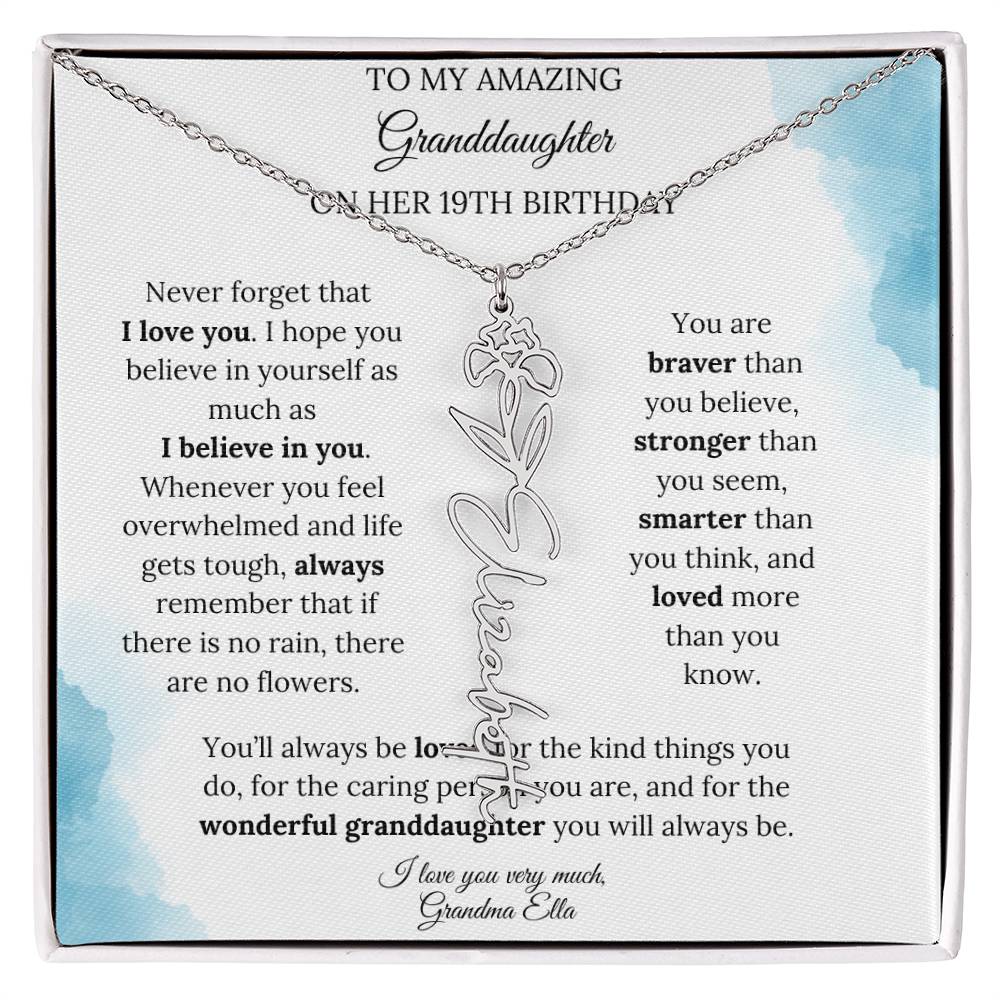 TO MY AMAZING
Granddaughter
ON HER 19TH BIRTHDAY
Never forget that
I love you. I hope you
believe in yourself as
much as
I believe in you.
Whenever you feel
overwhelmed and life
gets tough, always
remember that if
there is no rain, there
are no flowers.
You are
braver than
you believe,
stronger than
you seem,
smarter than
you think, and
loved more
than you
know.
Elizabeth
You'll always be loved for the kind things you
do, for the caring person you are, and for the
wonderful granddaughter you will always be.
I love you very much,
Grandma Ella